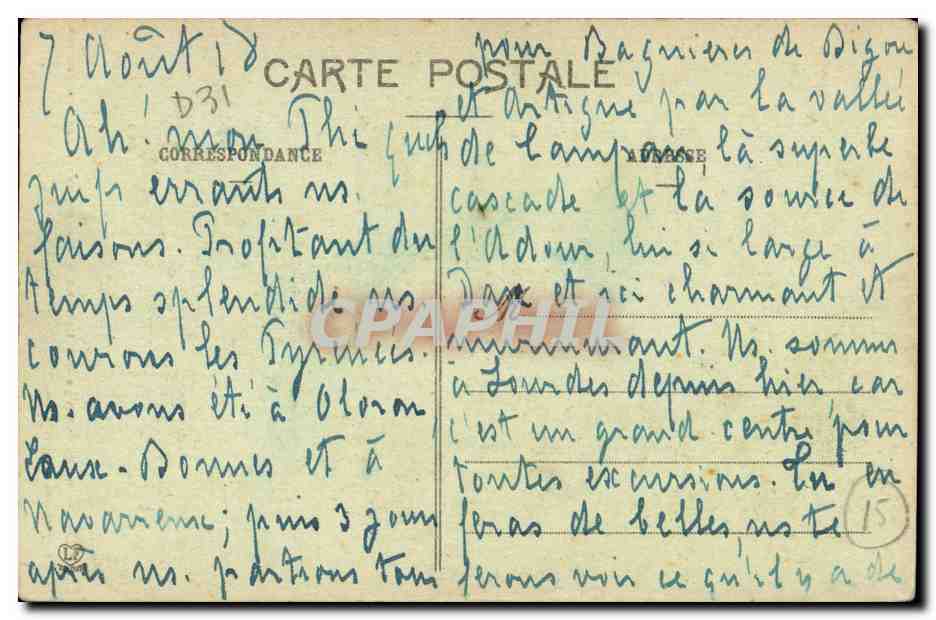 7 Août 18
CARTE POSTALE
D31
Ah! mon Thi quels
CORRESPONDANCE
juifs errants ns.
faisons. Profitant du
temps splendide ns
courons les Pyrénées.
Ns. avons été à Oloron
Eaux-Bonnes et à
Navarrenx; puis 3 jours
après ns. partons tous
LF
pour Bagnieres de Bigou
et Artigue par la vallée
de Campan là superbe
ADRESSE
cascade et là source de
l'Adour, lui si large à
Dax et ici charmant et
murmurant. Ns. sommes
à Lourdes depuis hier car
c'est un grand centre pour
toutes excursions. Tu en
feras de belles, ns te
ferons voir ce qu'il y a de
15
CPAPHIL